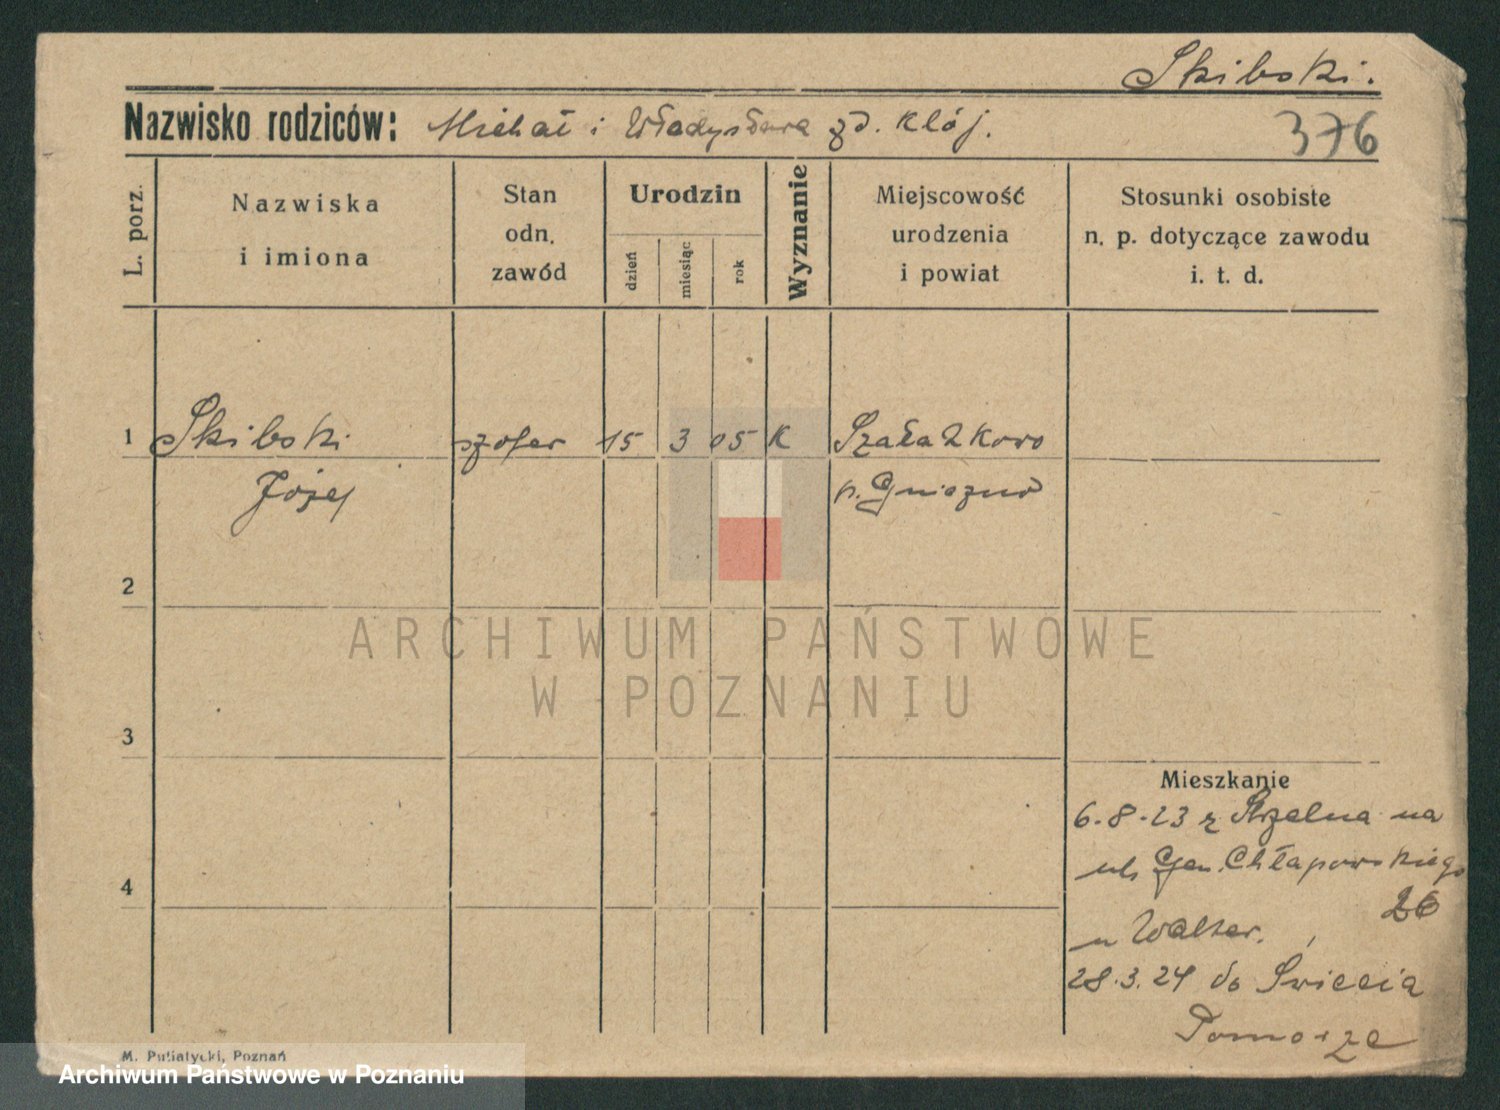 Skibski.
Nazwisko rodziców: Michał i Władysława zd. Klój.
376
L. porz.
Nazwiska
i imiona
Stan
odn.
zawód
Urodzin
dzień
miesiąc
rok
Wyznanie
Miejscowość
urodzenia
i powiat
Stosunki osobiste
n. p. dotyczące zawodu
i. t. d.
1 Skibski szofer 15 3 05 K
Józef p. Gniezno
2
ARCHIWUM PAŃSTWOWE
W POZNANIU
3
Mieszkanie
6.8.23 z Strzelna na
ul. Gen. Chłapowskiego
26
4
u Walter.
28.3.24 do Świecia
Pomorze
M. Putiatycki, Poznań
Archiwum Państwowe w Poznaniu